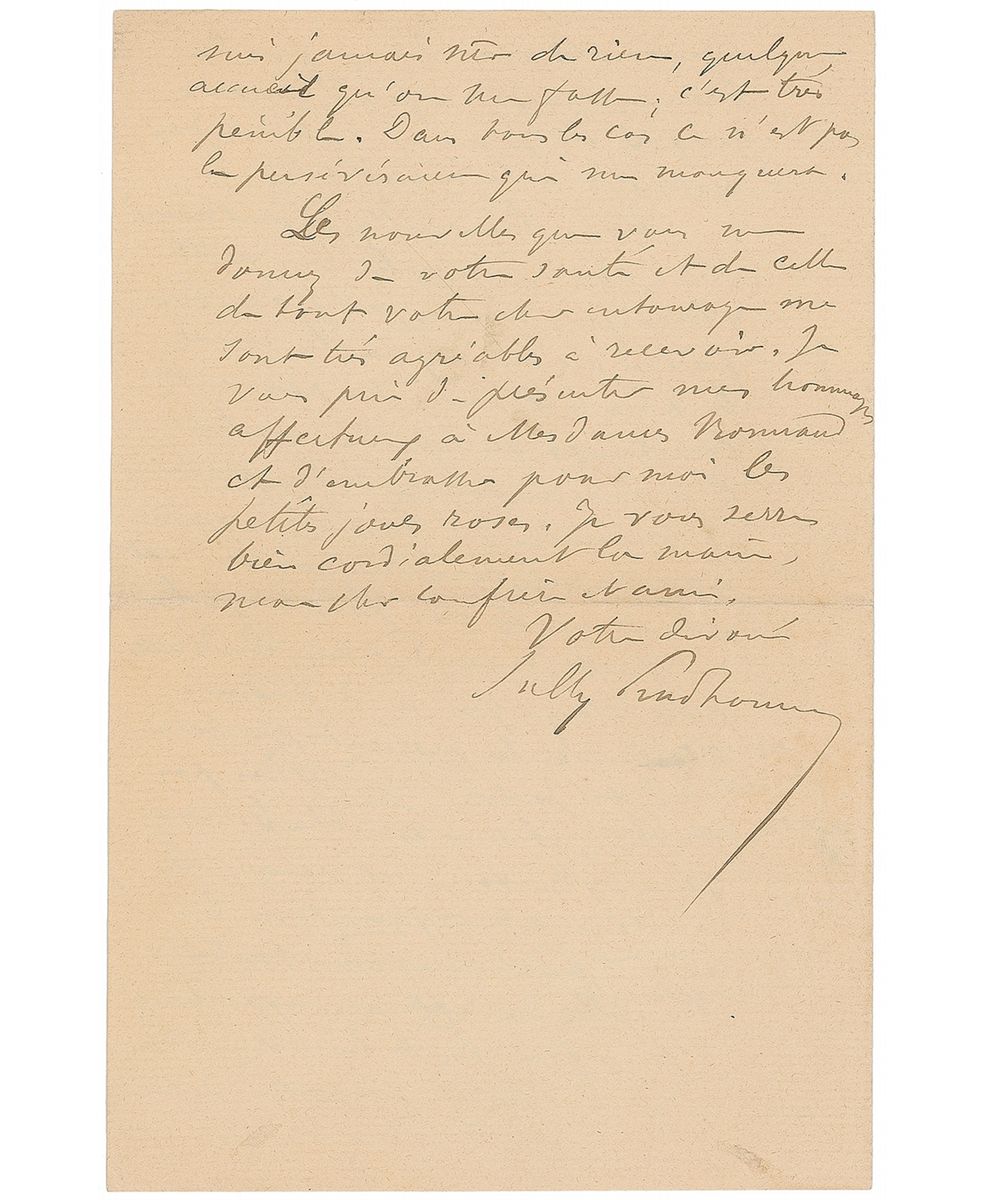 suis jamais sûr de rien, quelque
accueil qu'on me fasse ; c'est très
pénible. Dans tous les cas ce n'est pas
la persévérance qui me manquera.
Les nouvelles que vous me
donnez de votre santé et de celle
de tout votre cher entourage me
sont très agréables à recevoir. Je
vous prie de présenter mes hommages
affectueux à Mesdames
et d'embrasser pour moi les
petites joues roses. Je vous serre
bien cordialement la main,
mon cher confrère et ami.
Votre dévoué
Sully Prudhomme